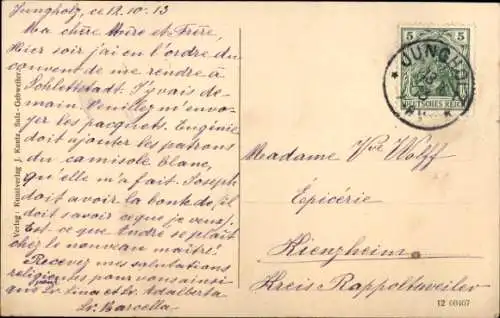 Jungholz, ce 12.10.13
Ma chère Mère et Frère,
Hier soir j'ai eu l'ordre du
couvent de me rendre à
Schlettstadt. J'y vais de-
main. Veuillez m'envo-
yer les pacquets. Eugénie
doit ajouter les patrons
du camisole blanc,
qu'elle m'a fait. Joseph
doit avoir la bonté de (il
doit savoir ce que je veux).
Est-ce que André se plaît
chez le nouveau maître?
Recevez mes salutations
religieuses pour vous ainsi
que Sr. Lina et Sr. Adalberta
Sr. Marcella.
Verlag: Kunstverlag J. Kautz Sulz-Gebweiler.
5 5
DEUTSCHES REICH
* JUNGHO
Madame Vve Wolff
Épicérie
Kienzheim
Kreis Rappoltsweiler
12 00407